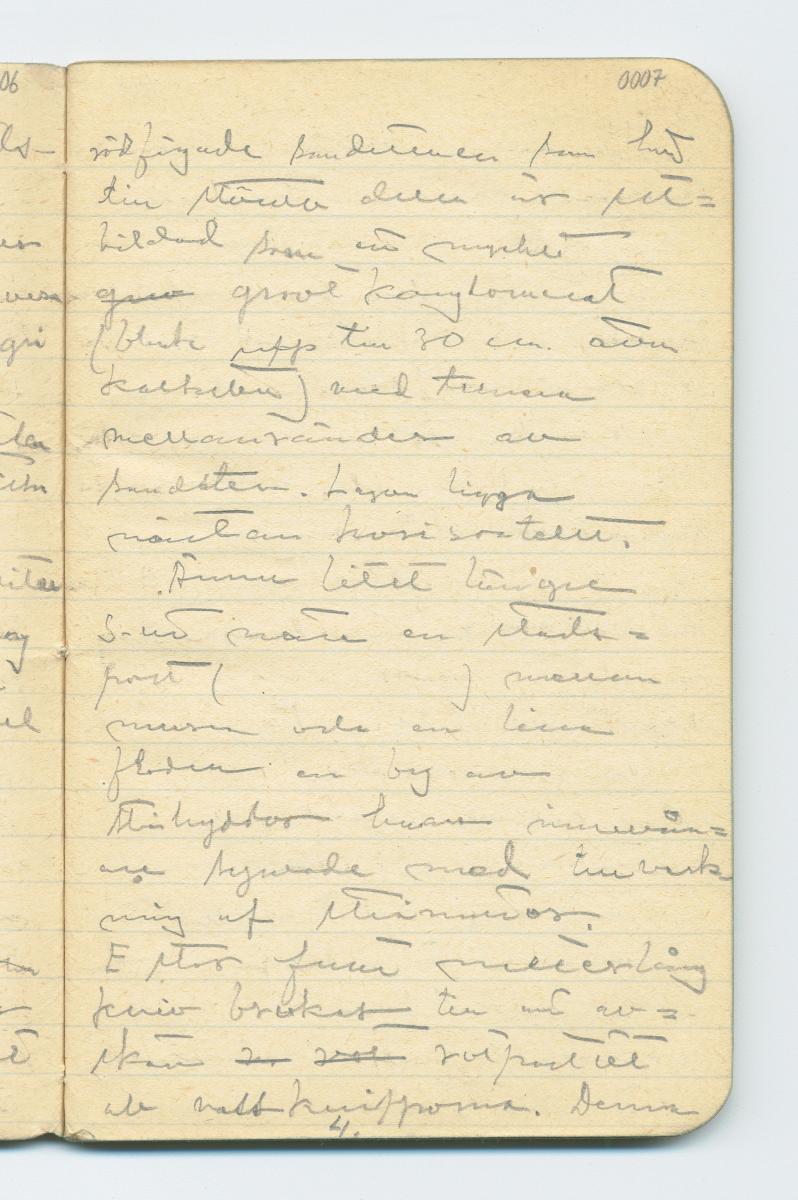 06
0007
rödfärgade sandstenen som här
till större delen är ut=
bildad som ett mycket
grov grovt konglomerat
(block upp till 30 cm. även
kalksten) med tunna
mellanränder av
sandsten. Lagren ligga
nästan horisontellt.
Ännu litet längre
S-ut nära en stads=
port ( ) mellan
muren och en liten
floden en by av
stråhyddor hvars innevån=
are sysslade med tillverk
ning af stråmattor.
E stor fullt meterlång
kniv brukas till att av=
skära rotpartiet
av vasskni­pporna. Denna
4.